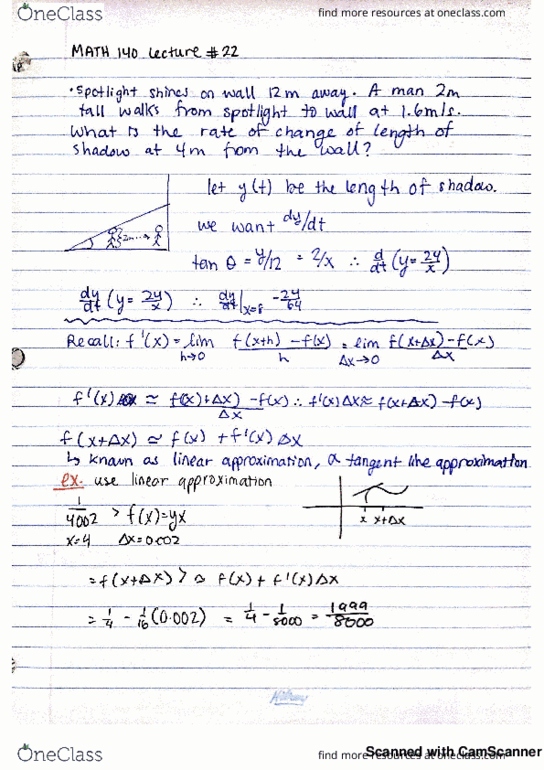 OneClass
find more resources at oneclass.com
MATH 140 Lecture #22
• Spotlight shines on wall 12m away. A man 2m
tall walks from spotlight to wall at 1.6m/s.
What is the rate of change of length of
shadow at 4m from the wall?
let y(t) be the length of shadow.
we want dy/dt
tan θ = y/12 = 2/x ∴ d/dt (y = 24/x)
dy/dt (y = 24/x) ∴ dy/dt|x=8 -24/64
Recall: f'(x) = lim h→0 f(x+h) - f(x) / h = lim Δx→0 f(x+Δx) - f(x) / Δx
f'(x) ≃ f(x)+Δx) - f(x) / Δx ∴ f'(x) Δx ≈ f(x+Δx) - f(x)
f(x+Δx) ≃ f(x) + f'(x) Δx
↳ known as linear approximation, or tangent line approximation
ex. use linear approximation
1/4002 > f(x) = yx
x=4 Δx=0.002
x x+Δx
= f(x+Δx) > ≃ f(x) + f'(x) Δx
= 1/4 - 1/16 (0.002) = 1/4 - 1/8000 = 1999/8000
OneClass
find more resources at oneclass.com
Scanned with CamScanner